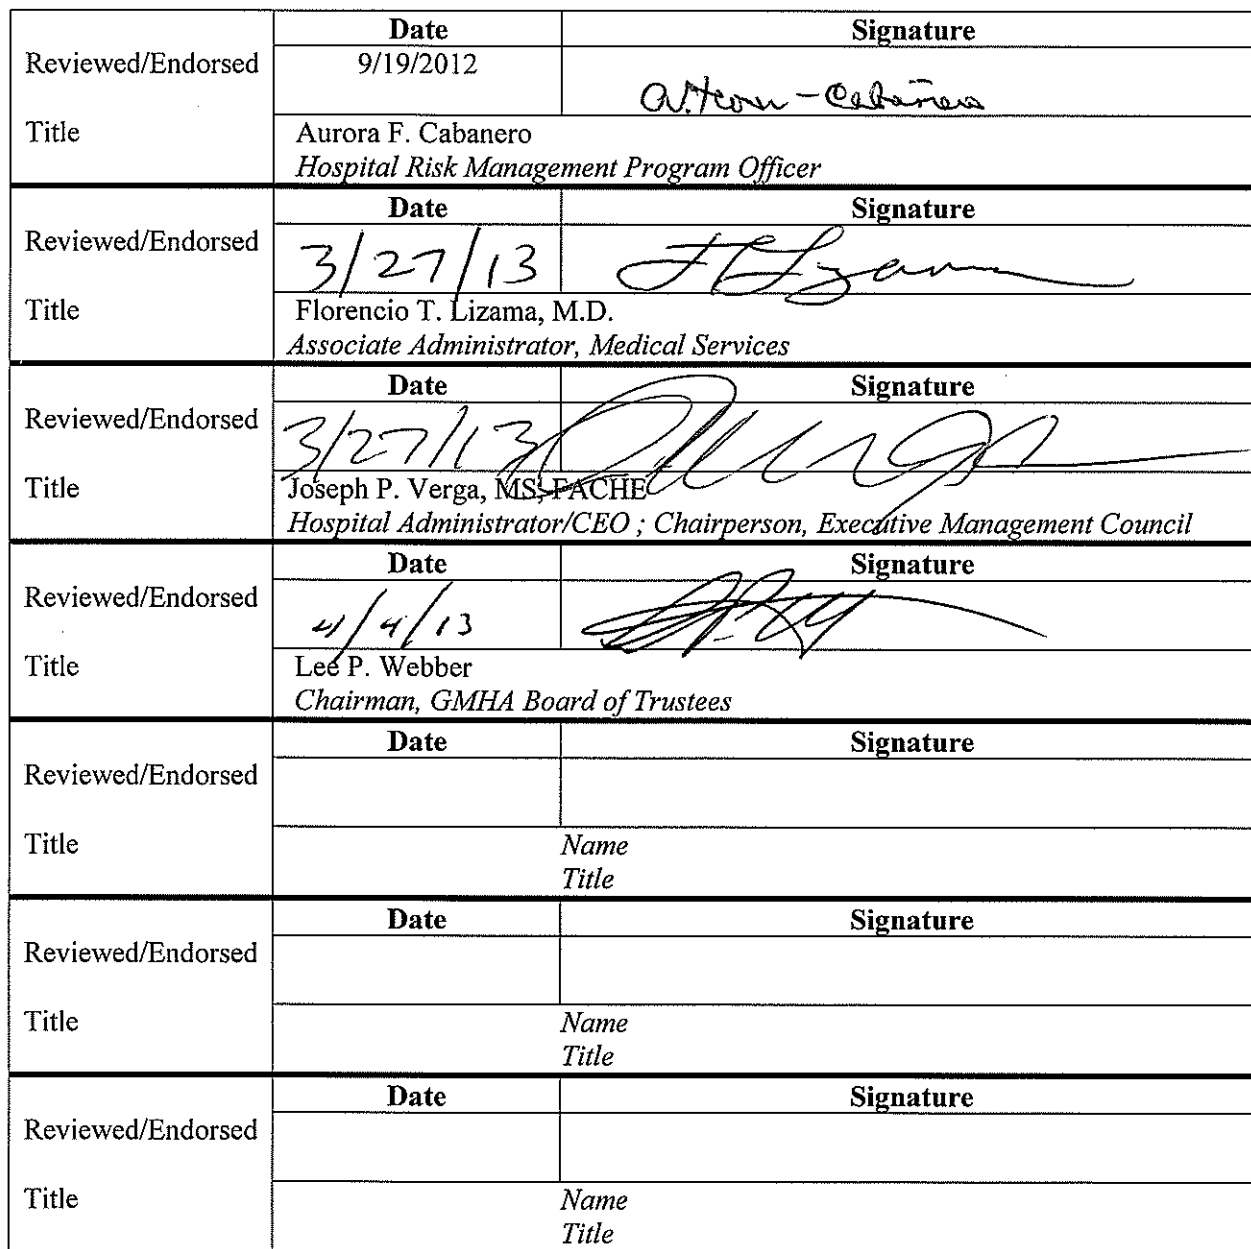 Date Signature
Reviewed/Endorsed 9/19/2012
Title Aurora F. Cabanero
Hospital Risk Management Program Officer
Date Signature
Reviewed/Endorsed 3/27/13
Title Florencio T. Lizama, M.D.
Associate Administrator, Medical Services
Date Signature
Reviewed/Endorsed 3/27/13
Title Joseph P. Verga, MS, FACHE
Hospital Administrator/CEO ; Chairperson, Executive Management Council
Date Signature
Reviewed/Endorsed 4/4/13
Title Lee P. Webber
Chairman, GMHA Board of Trustees
Date Signature
Reviewed/Endorsed
Title Name
Title
Date Signature
Reviewed/Endorsed
Title Name
Title
Date Signature
Reviewed/Endorsed
Title Name
Title